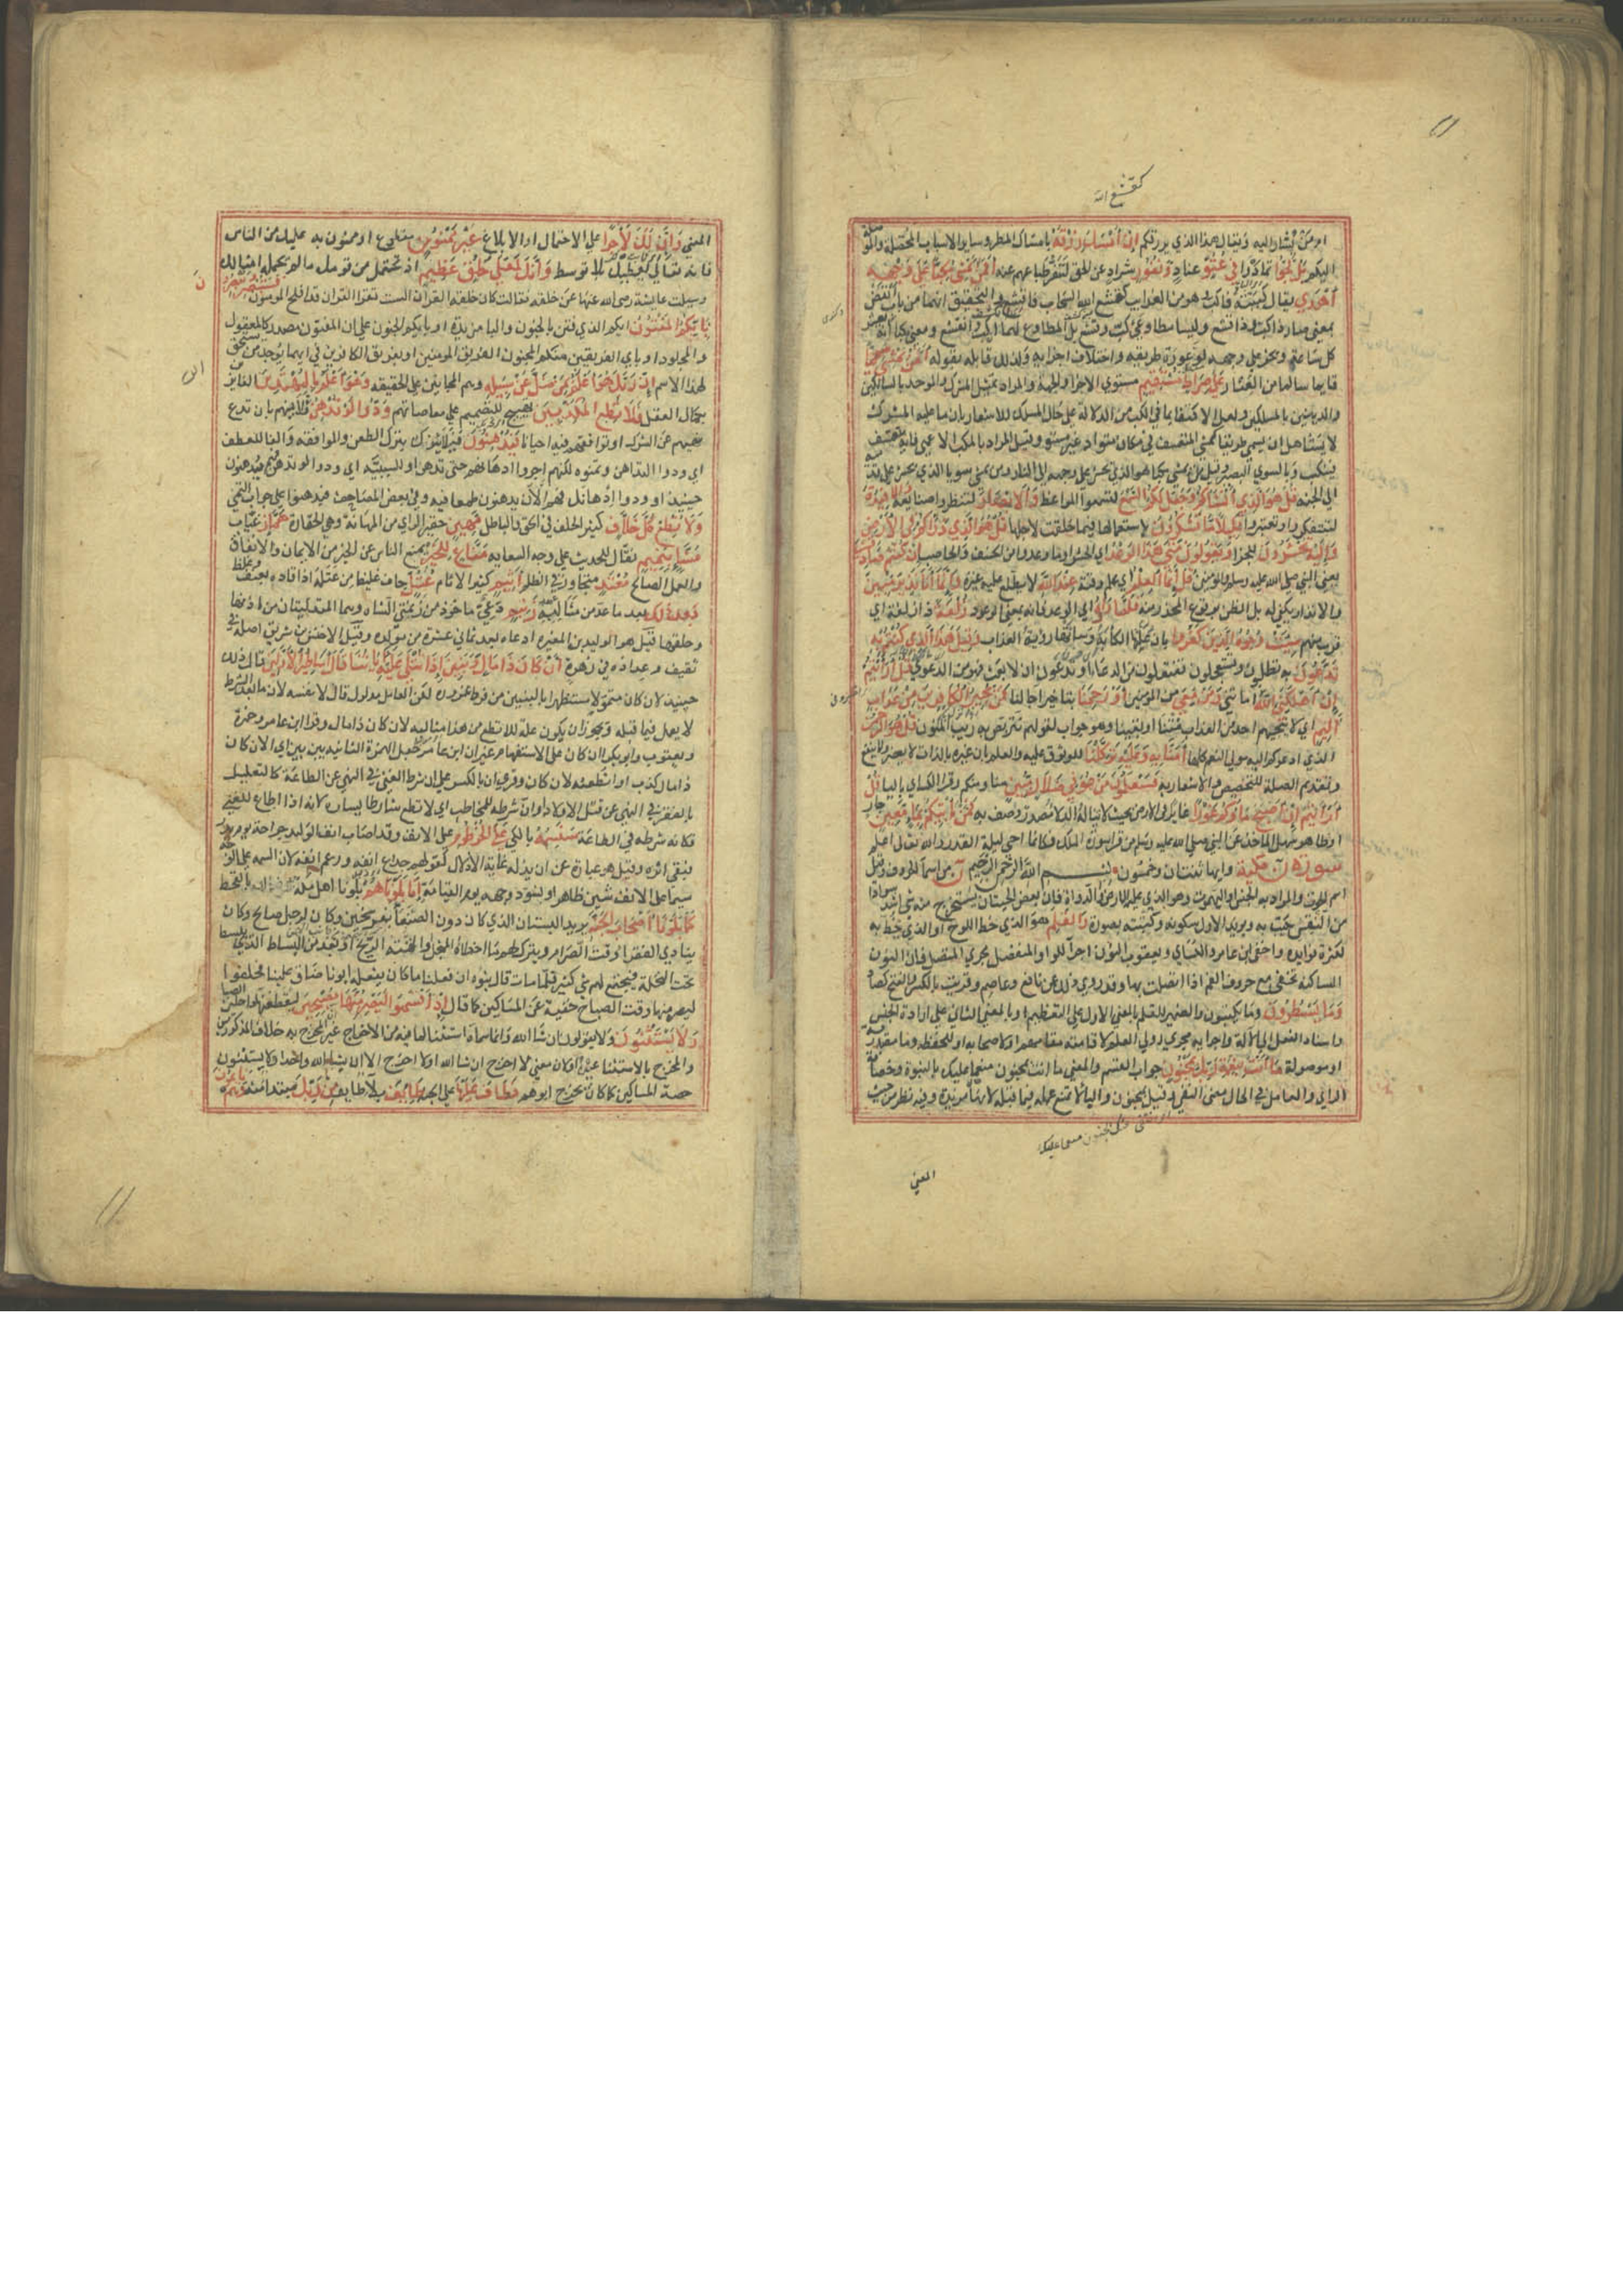 كقشع الله
ام من يشار اليه ويقال هذا الذي يرزقكم ان امسك رزقه بامساك المطر وساير الاسباب المحصلة والموصلة
اليكم بل لجوا تمادوا في عتو عناد ونفور شراد عن الحق لتنفر طباعهم عنه افمن يمشي مكبا على وجهه
اهدى يقال كببته فاكب وهو من الغرايب كقشع الله السحاب فاقشع والتحقيق انهما من باب انفض
بمعنى صار ذا كب وذا قشع وليسا مطاوعي كب وقشع بل المطاوع لهما انكب وانقشع ومعنى مكبا انه يعثر
كل ساعة ويخر على وجهه لوعورة طريقه واختلاف اجزايه ولذلك قابله بقوله امن يمشي سويا
قايما سالما من العثار على صراط مستقيم مستوي الاجزا والجهة والمراد تمثيل المشرك والموحد بالسالكين
والدينين بالمسلكين ولعل الاكتفا بما في الكب من الدلالة على حال المسلك للاشعار بان ما عليه المشرك
لا يستاهل ان يسمى طريقا كمشي المتعسف في مكان متعاد غير مستو وقيل المراد بالمكب الاعمى فانه يتعسف
فينكب وبالسوي البصير وقيل من يمشي مكبا هو الذي يحشر على وجهه الى النار ومن يمشي سويا الذي يحشر على قدميه
الى الجنة قل هو الذي انشاكم وجعل لكم السمع لتسمعوا المواعظ والابصار لتنظروا صنايعه والافئدة
لتتفكروا وتعتبروا قليلا ما تشكرون باستعمالها فيما خلقت لاجلها قل هو الذي ذراكم في الارض
واليه تحشرون للجزا ويقولون متى هذا الوعد اي الحشر او ما وعدوا من الخسف والحاصب ان كنتم صادقين
يعنون النبي صلى الله عليه وسلم والمؤمنين قل انما العلم اي علم وقته عند الله لا يطلع عليه غيره وانما انا نذير مبين
والانذار يكفي له بل الظن بوقوع المحذر منه فلما راوه اي الوعد فانه بمعنى الموعود زلفة ذا زلفة اي
قرب منهم سيئت وجوه الذين كفروا بان علتها الكابة وساءتها رؤية العذاب وقيل هذا الذي كنتم به
تدعون به تطلبون وتستعجلون تفتعلون من الدعا او تدعون ان لا بعث فهو من الدعوى قل ارايتم
ان اهلكني الله اماتني ومن معي من المؤمنين او رحمنا بتاخير اجالنا فمن يجير الكافرين من عذاب
اليم اي لا ينجيهم احد من العذاب متنا او بقينا وهو جواب لقولهم نتربص به ريب المنون قل هو الرحمن
الذي ادعوكم اليه مولي النعم كلها امنا به وعليه توكلنا للوثوق عليه والعلم بان غيره بالذات لا يضر ولا ينفع
وتقديم الصلة للتخصيص والاشعار به فستعلمون من هو في ضلال مبين منا ومنكم وقرا الكساي باليا قل
ارايتم ان اصبح ماوكم غورا غايرا في الارض بحيث لا تناله الدلا مصدر وصف به فمن ياتيكم بماء معين جار
او ظاهر سهل الماخذ عن النبي صلى الله عليه وسلم من قرا سورة الملك فكانما احيى ليلة القدر والله تعالى اعلم
سورة ن مكية وايها ثنتان وخمسون بسم الله الرحمن الرحيم ن من اسما الحروف وقيل
اسم للحوت والمراد به الجنس او اليهموت وهو الذي عليه الارض او الدواة فان بعض الحيتان يستخرج منه شي اشد سوادا
من النقس يكتب به ويويد الاول سكونه وكتبته بصورة والقلم هو الذي خط اللوح او الذي خط به
لكثرة فوايده واخفى ابن عامر والكساي ويعقوب النون اجرا للواو المنفصل مجرى المتصل فان النون
الساكنة تخفى مع حروف الفم اذا اتصلت بها وقد روي ذلك عن نافع وعاصم وقريت بالكسر والفتح كصاد
وما يسطرون وما يكتبون والضمير للقلم بالمعنى الاول على التعظيم او بالمعنى الثاني على ارادة الجنس
واسناد الفعل الى الالة واجرايه مجرى اولي العلم لاقامته مقامهم او لاصحابه او للحفظة وما مصدرية
او موصولة ما انت بنعمة ربك بمجنون جواب القسم والمعنى ما انت بمجنون منعما عليك بالنبوة وحصافة
الراي والعامل في الحال معنى النفي وقيل بمجنون والبا لا تمنع عمله فيما قبله لانها مزيدة وفيه نظر من حيث
المعنى
المعنى وان لك لاجرا على الاحتمال او الابلاغ غير ممنون مقطوع او ممنون به عليك من الناس
فانه تعالى يعطيك بلا توسط وانك لعلى خلق عظيم اذ تحتمل من قومك ما لم يحتمله امثالك
وسيلت عايشة رضى الله عنها عن خلقه فقالت كان خلقه القران الست تقرا القران قد افلح المومنون فستبصر ويبصرون
بايكم المفتون ايكم الذي فتن بالجنون والبا مزيدة او بايكم الجنون على ان المفتون مصدر كالمعقول
والمجلود او باي الفريقين منكم المجنون ابفريق المومنين او بفريق الكافرين في ايهما يوجد من يستحق
لهذا الاسم ان ربك هو اعلم بمن ضل عن سبيله وهم المجانين على الحقيقة وهو اعلم بالمهتدين الفايزين
بكمال العقل فلا تطع المكذبين تهييج للتصميم على معاصاتهم ودوا لو تدهن تلاينهم بان تدع
نهيهم عن الشرك او توافقهم فيه احيانا فيدهنون فيلاينونك بترك الطعن والموافقة والفا للعطف
اي ودوا التداهن وتمنوه لكنهم اخروا ادهانهم حتى تدهن او للسببية اي ودوا لو تدهن فهم يدهنون
حينيذ او ودوا ادهانك فهم الان يدهنون طمعا فيه وفي بعض المصاحف فيدهنوا على جواب التمني
ولا تطع كل حلاف كثير الحلف في الحق والباطل مهين حقير الراي من المهانة وهي الحقارة هماز عياب
مشاء بنميم نقال للحديث على وجه السعاية مناع للخير يمنع الناس عن الخير من الايمان والانفاق
والعمل الصالح معتد متجاوز في الظلم اثيم كثير الاثام عتل جاف غليظ من عتله اذا قاده بعنف وغلظة
بعد ذلك بعد ما عد من مثالبه زنيم دعي ماخوذ من زنمتي الشاة وهما المتدليتان من اذنها
وحلقها قيل هو الوليد بن المغيرة ادعاه بعد ثماني عشرة من مولده وقيل الاخنس بن شريق اصله في
ثقيف وعداده في زهرة ان كان ذا مال وبنين اذا تتلى عليه اياتنا قال اساطير الاولين قال ذلك
حينيذ لان كان متمولا مستظهرا بالبنين من فرط غروره لكن العامل مدلول قال لا نفسه لان ما بعد الشرط
لا يعمل فيما قبله ويجوز ان يكون علة للا تطع من هذا مثاله لان كان ذا مال وقرا ابن عامر وحمزة
ويعقوب وابو بكر اان كان على الاستفهام غير ان ابن عامر جعل الهمزة الثانية بين بين اي الان كان
ذا مال كذب او اتطيعه لان كان وقرى ان بالكسر على ان شرط الغنى في النهي عن الطاعة كالتعليل
بالفقر في النهي عن قتل الاولاد او ان شرطه للمخاطب اي لا تطع شارطا يساره لانه اذا اطاع للغنى
فكانه شرطه في الطاعة سنسمه بالكي على الخرطوم على الانف وقد اصاب انف الوليد جراحة يوم بدر
فبقى اثره وقيل هو عبارة عن ان يذله غاية الاذلال كقولهم جدع انفه ورغم انفه لان السمة على الوجه
سيما على الانف شين ظاهر او نسود وجهه يوم القيامة انا بلوناهم بلونا اهل مكة بالقحط
كما بلونا اصحاب الجنة يريد البستان الذي كان دون الصنعا بفرسخين وكان لرجل صالح وكان
ينادي الفقرا وقت الصرام ويترك لهم ما اخطاه المنجل والقته الريح او بعد من البساط الذي يبسط
تحت النخلة فيجتمع لهم شي كثير فلما مات قال بنوه ان فعلنا ما كان يفعله ابونا ضاق علينا فحلفوا
ليصرمنها وقت الصباح خفية عن المساكين كما قال اذ اقسموا ليصرمنها مصبحين ليقطعنها داخلين الصباح
ولا يستثنون ولا يقولون ان شا الله وانما سماه استثنا لما فيه من الاخراج غير ان المخرج به خلاف المذكور
والمخرج بالاستثنا عينه او لان معنى لا اخرج ان شا الله ولا اخرج الا ان يشا الله واحد او لا يستثنون
حصة المساكين كما كان يخرج ابوهم فطاف عليها على الجنة طايف بلا طايف من ربك مبتدا منه وهم نايمون